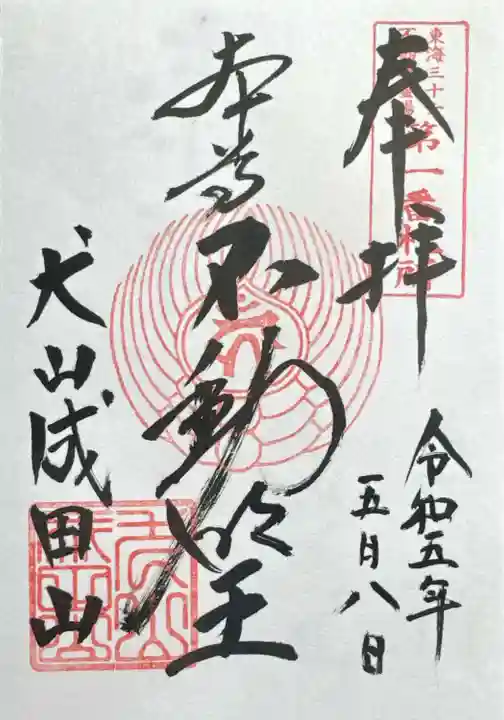 東海三十六
不動尊霊場
第一番札所
奉拝
令和五年
五月八日
本尊
不動明王
犬山成田山